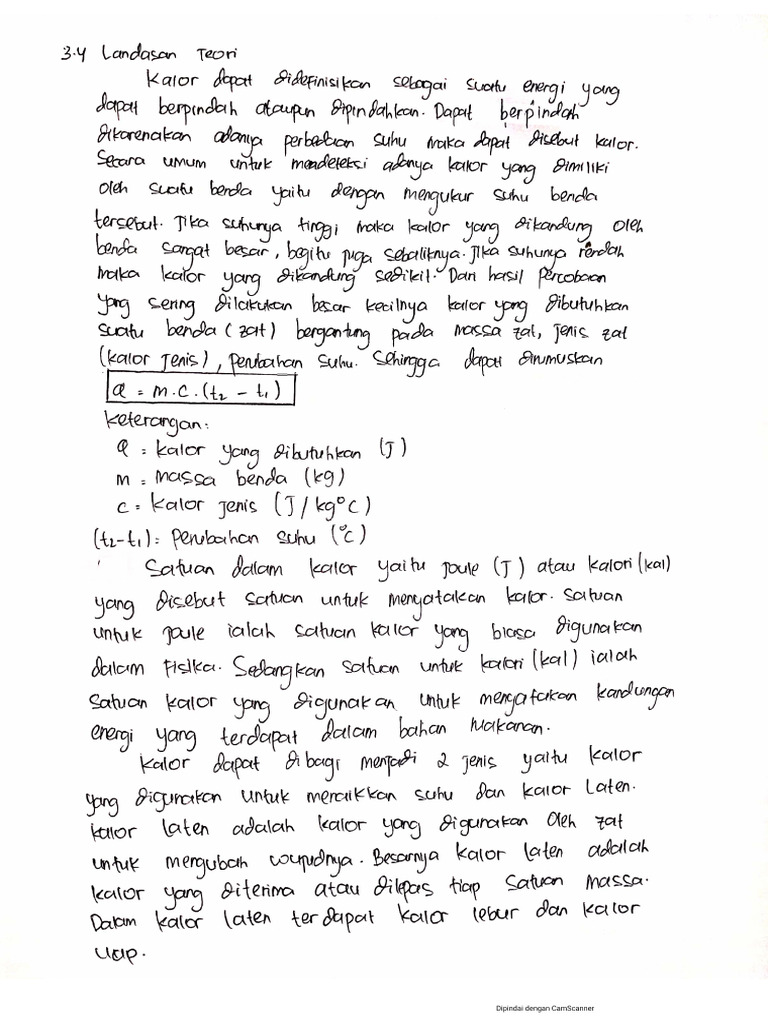 3.4 Landasan Teori
Kalor dapat didefinisikan sebagai suatu energi yang
dapat berpindah ataupun dipindahkan. Dapat berpindah
dikarenakan adanya perbedaan suhu maka dapat disebut kalor.
Secara umum untuk mendeteksi adanya kalor yang dimiliki
oleh suatu benda yaitu dengan mengukur suhu benda
tersebut. Jika suhunya tinggi maka kalor yang dikandung oleh
benda sangat besar, begitu juga sebaliknya. Jika suhunya rendah
maka kalor yang dikandung sedikit. Dari hasil percobaan
yang sering dilakukan besar kecilnya kalor yang dibutuhkan
suatu benda (zat) bergantung pada massa zat, jenis zat
(kalor jenis), perubahan suhu. Sehingga dapat dirumuskan
Q = m.c.(t₂ - t₁)
Keterangan:
Q = kalor yang dibutuhkan (J)
m = massa benda (kg)
c = kalor jenis (J/kg°C)
(t₂-t₁) = Perubahan suhu (°C)
Satuan dalam kalor yaitu joule (J) atau kalori (kal)
yang disebut satuan untuk menyatakan kalor. Satuan
untuk joule ialah satuan kalor yang biasa digunakan
dalam fisika. Sedangkan satuan untuk kalori (kal) ialah
satuan kalor yang digunakan untuk menyatakan kandungan
energi yang terdapat dalam bahan makanan.
Kalor dapat dibagi menjadi 2 jenis yaitu kalor
yang digunakan untuk menaikkan suhu dan kalor laten.
kalor laten adalah kalor yang digunakan oleh zat
untuk mengubah wujudnya. Besarnya kalor laten adalah
kalor yang diterima atau dilepas tiap satuan massa.
Dalam kalor laten terdapat kalor lebur dan kalor
uap.
Dipindai dengan CamScanner